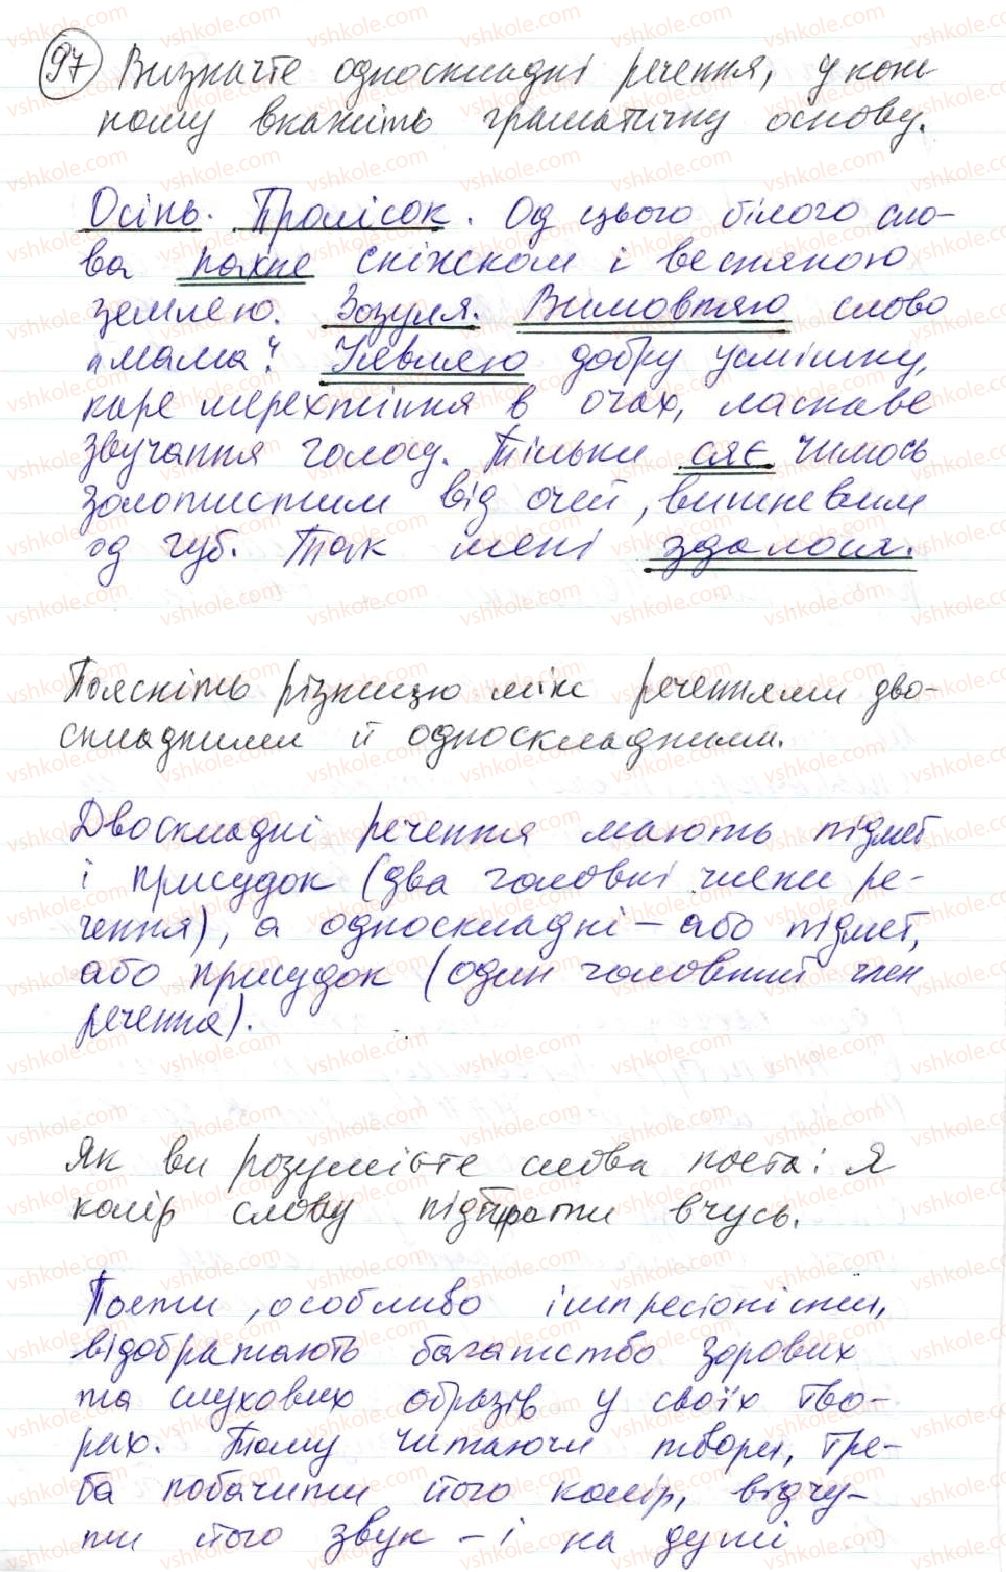 97 Визначте односкладні речення, у кож-
ному вкажіть граматичну основу.
Осінь. Пролісок. Од цього білого сло-
ва пахне сніжком і весняною
землею. Зозуля. Вимовляю слово
"мама". Уявляю добру усмішку,
каре мерехтіння в очах, ласкаве
звучання голосу. Тільки сяє чимось
золотистим від очей, вишневим
од губ. Так мені здалося.
Поясніть різницю між реченнями дво-
складними й односкладними.
Двоскладні речення мають підмет
і присудок (два головні члени ре-
чення), а односкладні – або підмет,
або присудок (один головний член
речення).
Як ви розумієте слова поета: Я
колір слову підбирати вчусь.
Поети, особливо імпресіоністи,
відображають багатство зорових
та слухових образів у своїх тво-
рах. Тому читаючи твори, тре-
ба побачити його колір, відчу-
ти його звук – і на душі